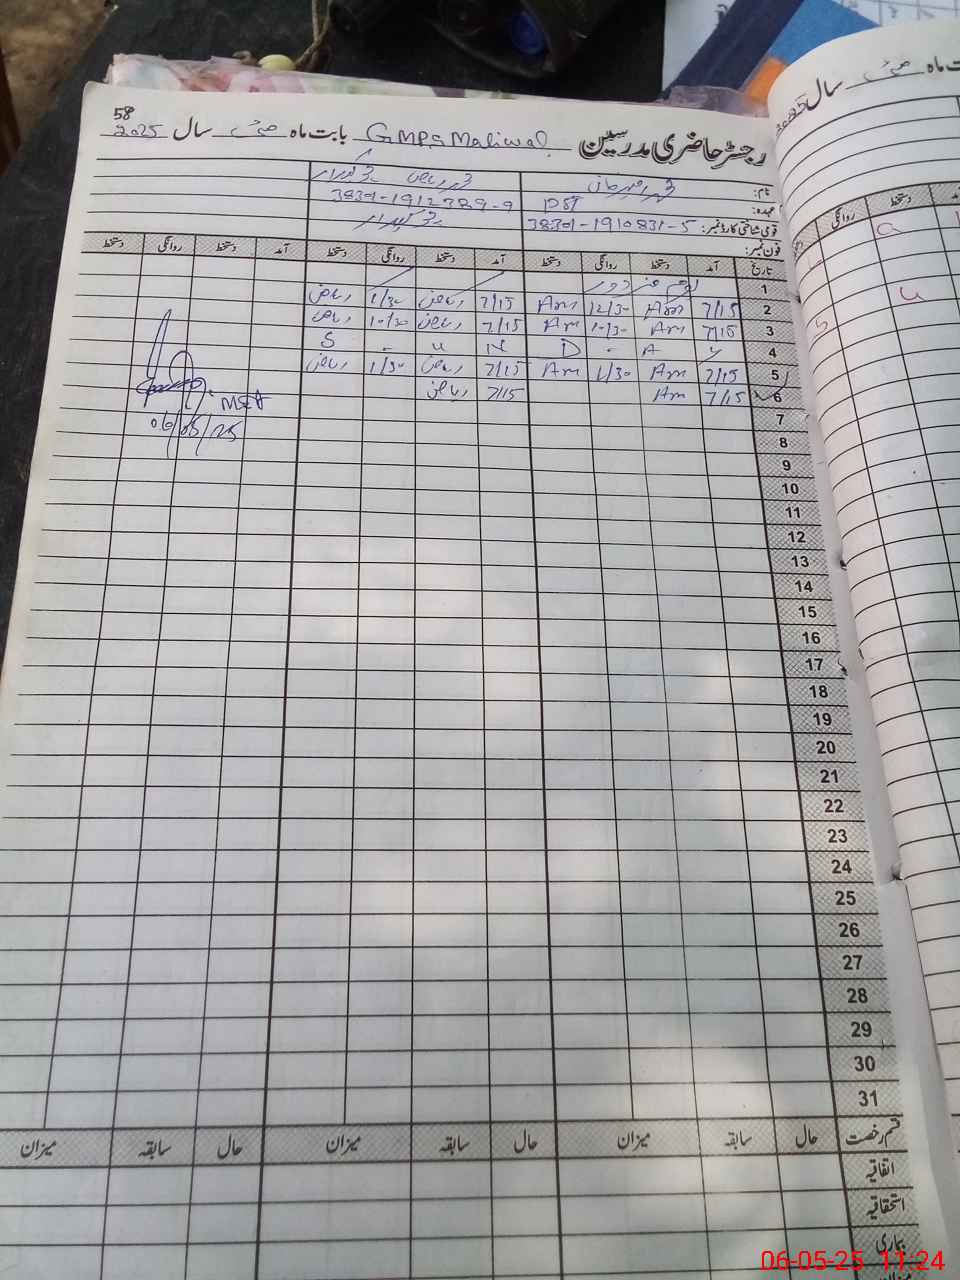 58
رجسٹر حاضری مدرسین GMPS Maliwal بابت ماہ مئی سال 2025
نام:
عہدہ: PST
قومی شناختی کارڈ نمبر: 38301-1910831-5 38301-1912389-9
فون نمبر:
تاریخ آمد دستخط روانگی دستخط آمد دستخط روانگی دستخط آمد دستخط روانگی دستخط
1 یوم مزدور
2 7/15 Am 12/30 Am 7/15 ریاض 1/30 ریاض
3 7/15 Am 10/30 Am 7/15 ریاض 10/30 ریاض
4 Y A - D N u - S
5 7/15 Am 1/30 Am 7/15 ریاض 1/30 ریاض
6 7/15 Am 7/15 ریاض
MEA
06/05/25
7
8
9
10
11
12
13
14
15
16
17
18
19
20
21
22
23
24
25
26
27
28
29
30
31
قسم رخصت حال سابقہ میزان حال سابقہ میزان حال سابقہ میزان
اتفاقیہ
استحقاقیہ
بیماری
ماہ مئی سال 2025
آمد دستخط روانگی
a
u
06-05-25 11:24